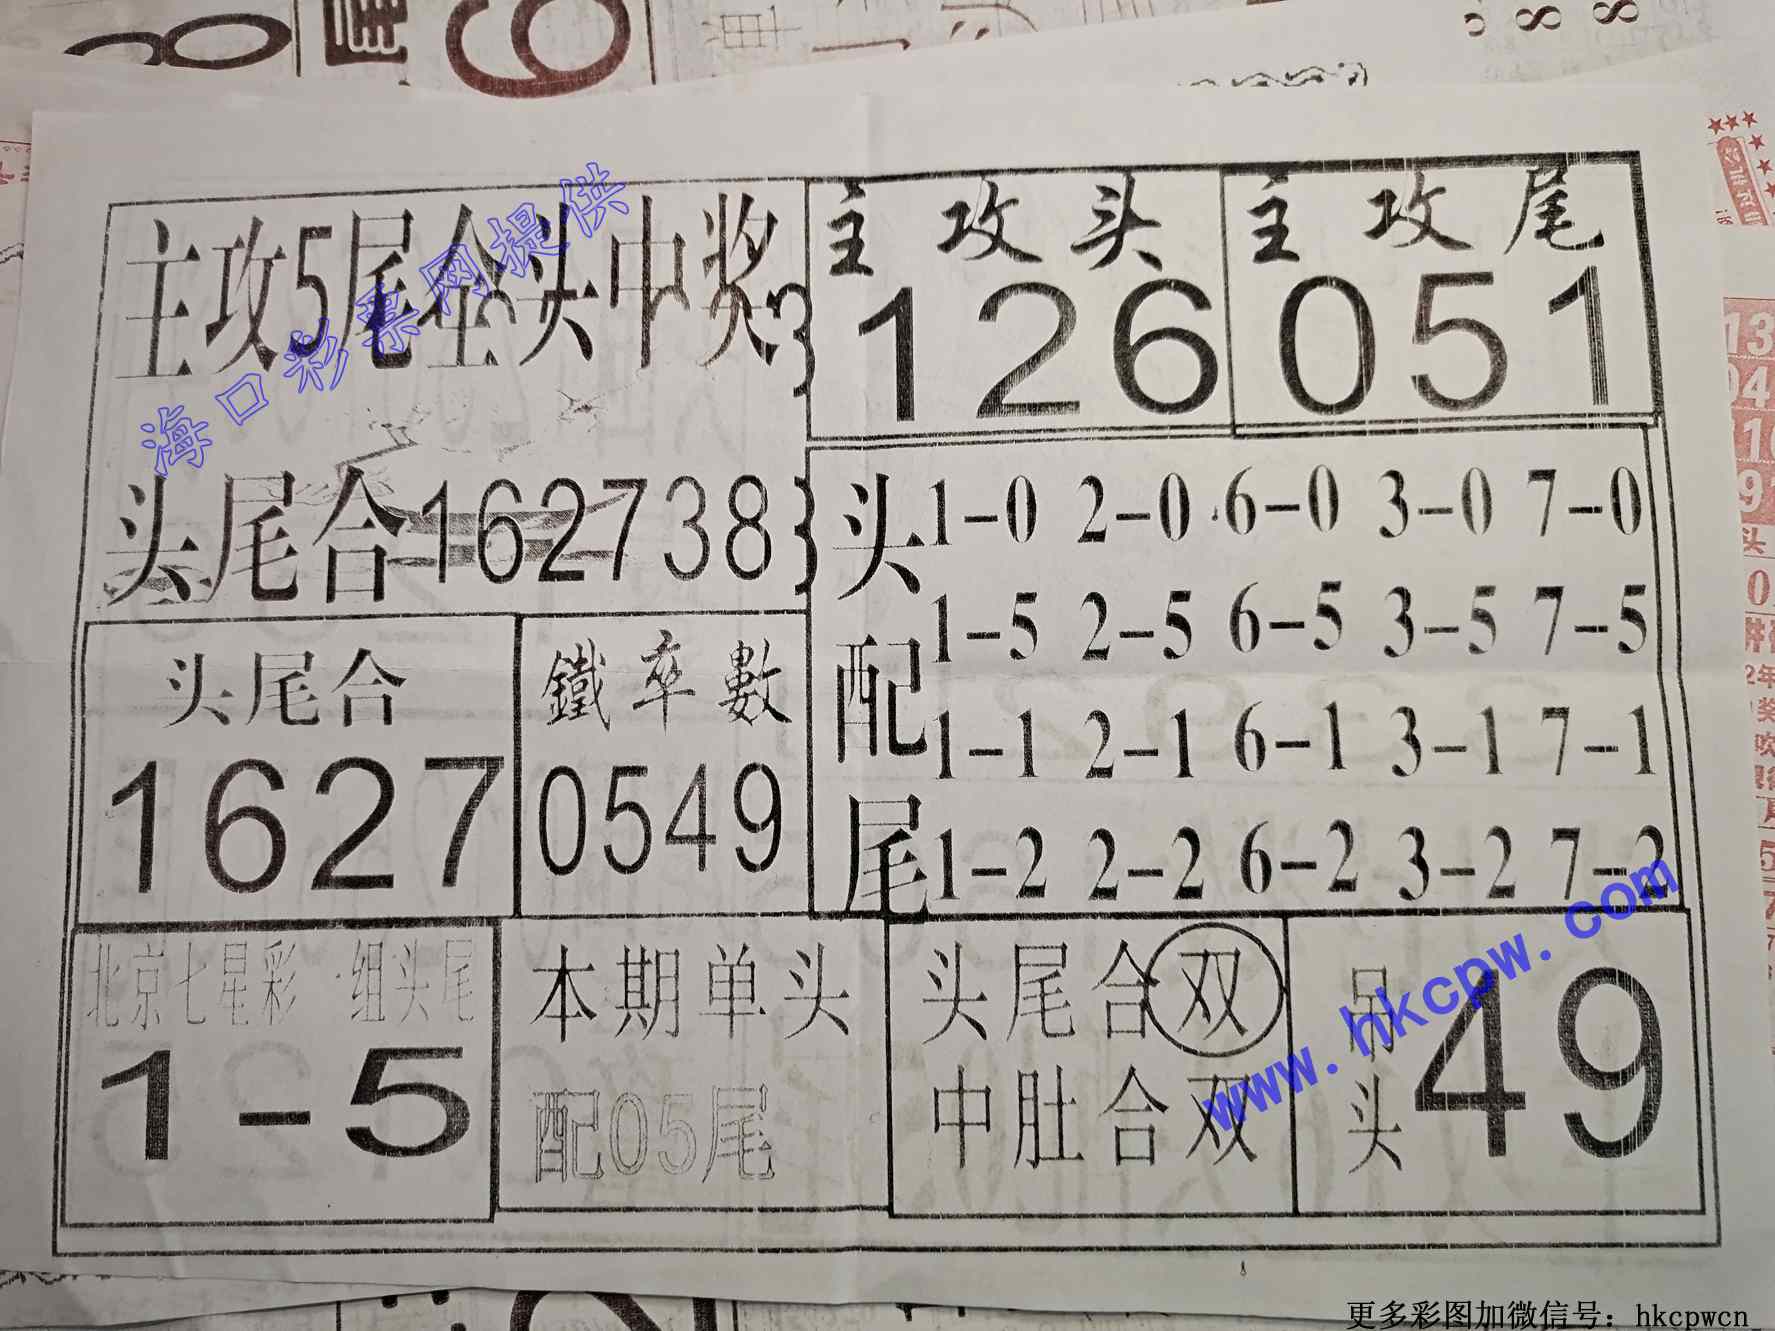 主攻5尾全头中奖
主攻头
126
主攻尾
051
头尾合162738
头配尾
1-0 2-0 6-0 3-0 7-0
1-5 2-5 6-5 3-5 7-5
1-1 2-1 6-1 3-1 7-1
1-2 2-2 6-2 3-2 7-2
头尾合
1627
鐵卒數
0549
北京七星彩 一组头尾
1-5
本期单头
配05尾
头尾合双
中肚合双
吊头
49
海口彩票网提供
www.hkcpw.com
更多彩图加微信号：hkcpwcn